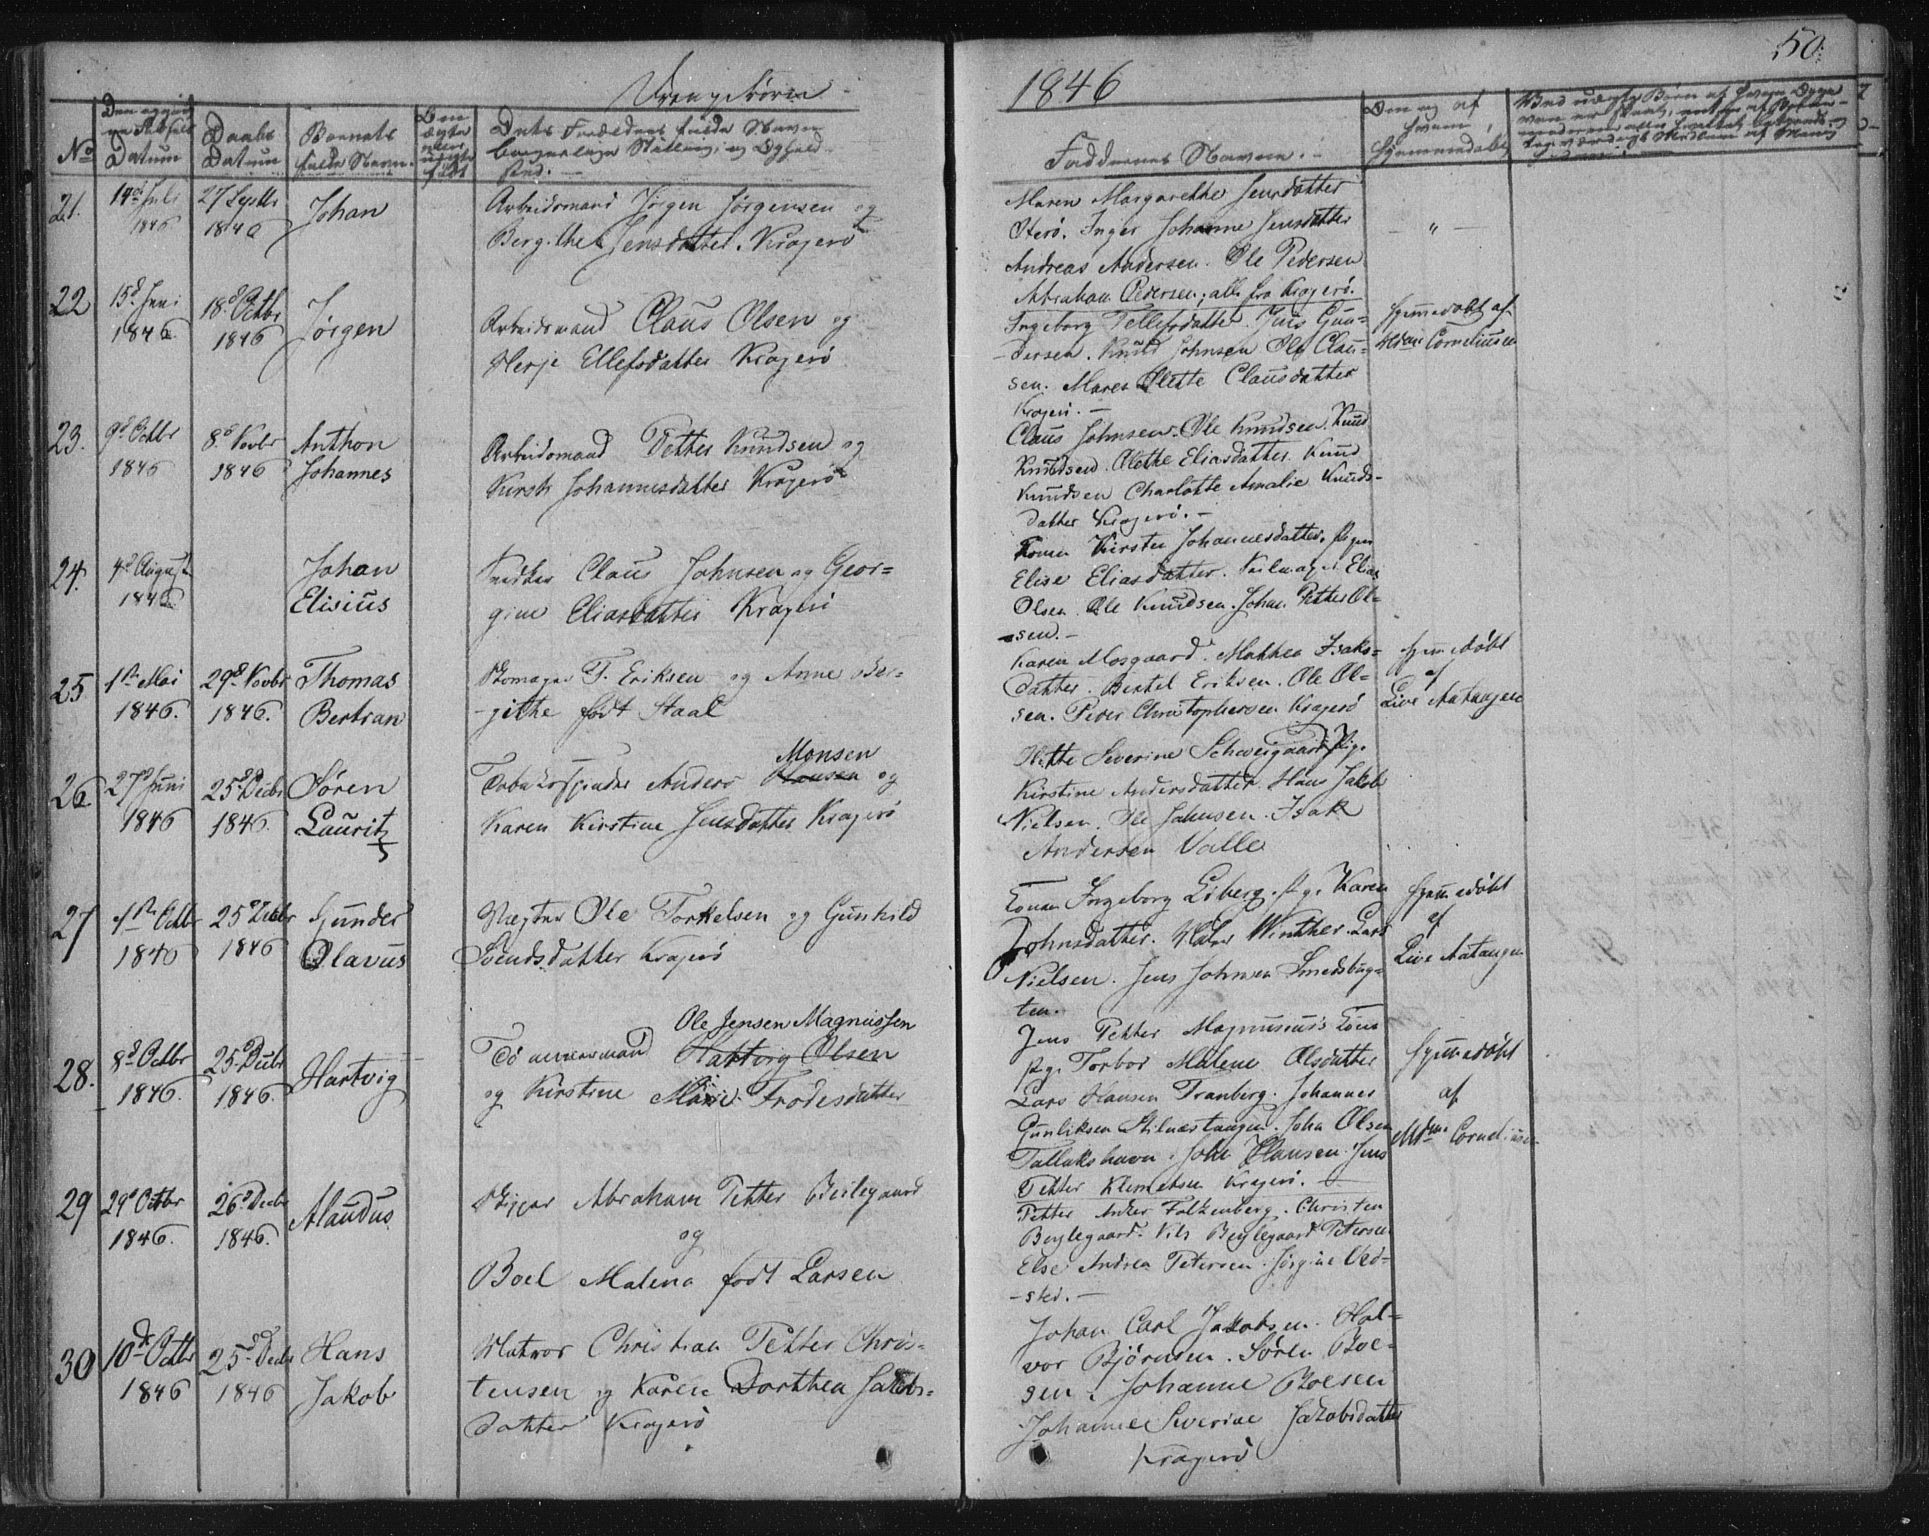 50.
Drengebörn
1846
No
Datum
Daabs Datum
Barnets fulde Navn.
Faddernes Navne.
21.
14de Juli 1846
27 Septbr 1846
Johan
Arbeidsmand Jörgen Jörgensen og
Bergithe Jensdatter. Kragerö
Maren Margarethe Jensdatter
Oterö. Inger Johanne Jensdatter
Andreas Andersen. Ole Pedersen
Abraham Pedersen, alle fra Kragerö.
22
15d Juni 1846
18d Octbr 1846
Jörgen
Arbeidsmand Claus Olsen og
Herje Ellefsdatter Kragerö
Ingeborg Tellefsdatter. Jens Gun-
dersen. Knud Johnsen Ole Clau-
sen. Maren Olette Clausdatter
Kragerö. -
hjemmedöbt af
Mdme Corneliusen
23.
9d Octbr 1846
8d Novbr 1846
Anthon
Johannes
Arbeidsmand Petter Knudsen og
Kirsti Johannesdatter Kragerö
Claus Johnsen. Ole Knudsen. Knud
Knudsen. Olethe Eliasdatter. Knud
Knudsen Charlotte Amalie Knuds-
datter Kragerö. -
24.
4d August 1846
Johan
Elisius
Snedker Claus Johnsen og Geor-
gine Eliasdatter Kragerö
Konen Kirsten Johannesdatter. Pigen
Elise Eliasdatter. Seilmager Elias
Olsen. Ole Knudsen. Johan Petter Ol-
sen. -
25
1ste Mai 1846.
29d Novbr 1846.
Thomas
Bertran
Skomager T. Eriksen og Anne Ber-
githe födt Staal
Karen Mosgaard. Mathea Isaks-
datter. Bertel Eriksen. Ole Ol-
sen. Peder Christophersen Kragerö
hjemmedöbt
af
Live Aatangen
26
27d Juni 1846
25d Decbr 1846.
Sören
Lauritz
Monsen
Tobakksspinder Anders Hansen og
Karen Kirstine Jensdatter Kragerö
Mette Severine Schweigaard Pig.
Kirstine Andersdatter Hans Jakob
Nielsen. Ole Johnsen. Isak
Andersen Valle
27
1ste Octbr 1846
25d Decbr 1846
Gunder
Olavus
Vægter Ole Torkelsen og Gunhild
Svendsdatter Kragerö
Konen Ingeborg Liberg. Pg. Karen
Johnsdatter. Halvor Winther. Lars
Nielsen. Jens Johnsen Smedsbug-
ten.
hjemmedöbt
af
Live Aatangen
28.
8d Octbr 1846.
25d Decbr 1846.
Hartvig
Ole Jensen Magnussen
Tömmermand Hartvig Olsen
og Kirstine Marie Frodesdatter
Jens Petter Magnusius's Kone
Pg. Torbor Malene Olsdatter
Lars Hansen Tranberg. Johannes
Gunliksen Stilnestangen. John Olsen
Tallakshavn. John Hansen. Jens
Petter Klemetsen Kragerö.
hjemmedöbt
af
Mdme Corneliusen
29
29d Octbr 1846.
26d Decbr 1846.
Alaudus
Skipper Abraham Petter Beilegaard
og
Boel Malena födt Larsen
Petter Ander Falkenberg. Christen
Beylegaard. Nils Beylegaard Petersen
Else Andrea Petersen. Jörgine Ved-
sted. -
30
10de Octbr 1846
25d Decbr 1846
Hans
Jakob
Matros Christian Petter Chris-
tensen og Karen Dorthea Jakobs-
datter Kragerö
Johan Carl Jakobsen. Hal-
vor Björnsen. Sören Boe-
sen. Johanne Boesen
Johanne Severine Jakobsdatter
Kragerö